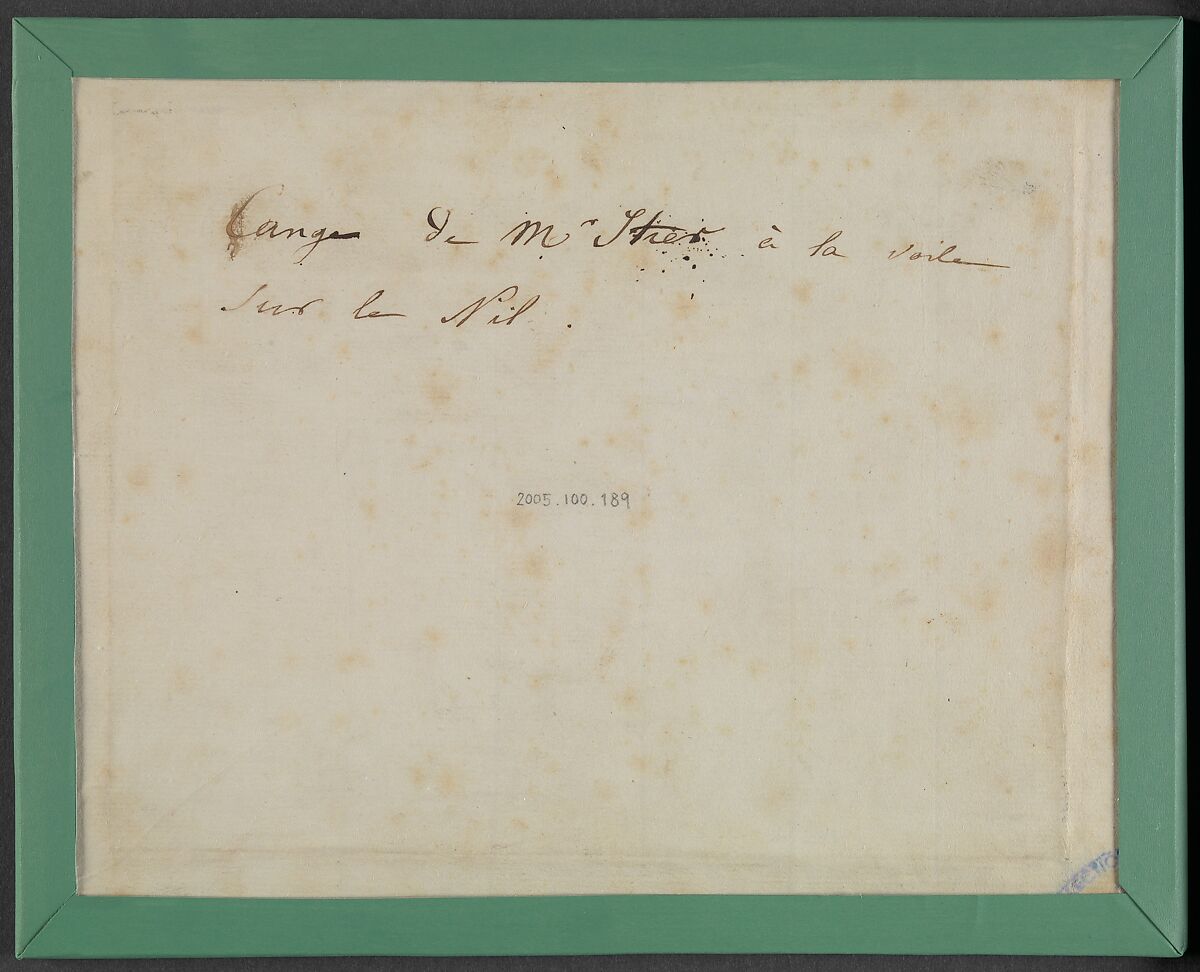 Cange de Mr Stier à la voile
sur le Nil.
2005.100.189
ECTIO